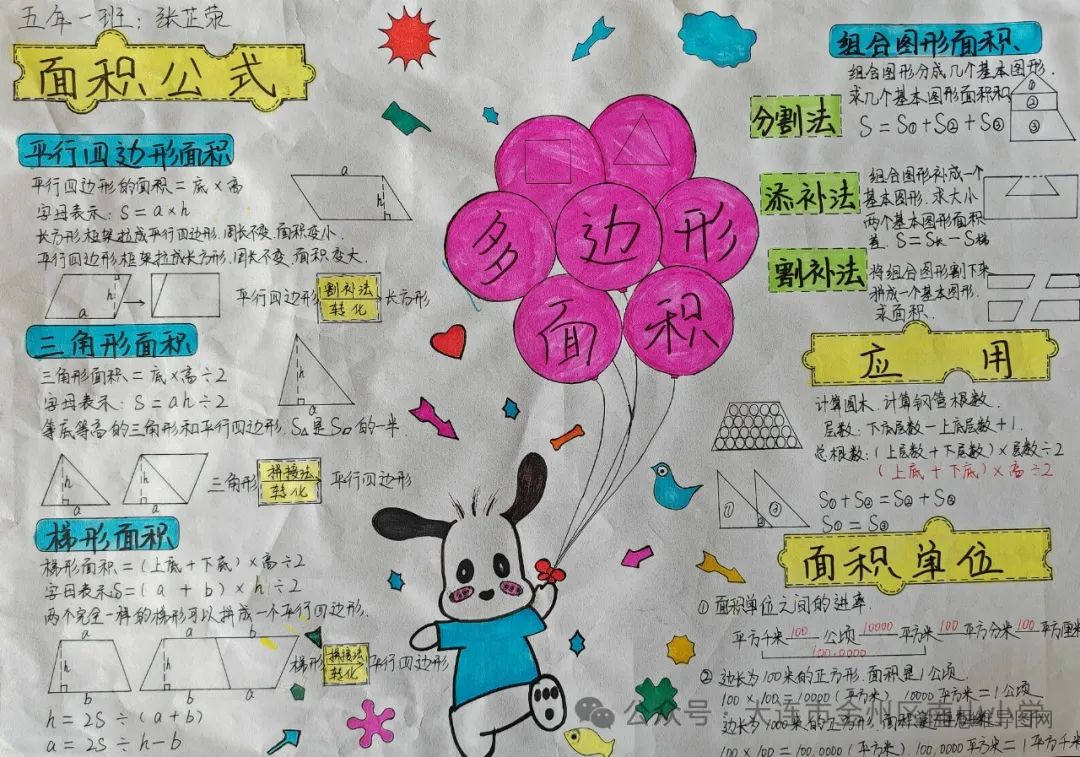 五年一班：张芷荥
面积公式
平行四边形面积
平行四边形的面积=底×高
字母表示：S=a×h
长方形框架拉成平行四边形.周长不变.面积变小.
平行四边形框架拉成长方形.周长不变.面积变大.
a
h
h
a
平行四边形 割补法 转化 长方形
三角形面积
三角形面积=底×高÷2
字母表示：S=ah÷2
等底等高的三角形和平行四边形,S△是S▱的一半.
h
a
h
a
h
a
三角形 拼接法 转化 平行四边形
梯形面积
梯形面积=(上底+下底)×高÷2
字母表示S=(a+b)×h÷2
两个完全一样的梯形可以拼成一个平行四边形.
a
h
b
a b
h
b a
梯形 拼接法 转化 平行四边形
h=2S÷(a+b)
a=2S÷h-b
多边形
面积
组合图形面积
分割法
组合图形分成几个基本图形.
求几个基本图形面积和
S=S①+S②+S③
①
②
③
添补法
组合图形补成一个
基本图形.求大小
两个基本图形面积
差.S=S长-S梯
割补法
将组合图形割下来
拼成一个基本图形.
求面积.
应用
计算圆木.计算钢管根数.
层数:下底层数-上底层数+1.
总根数:(上层数+下层数)×层数÷2
(上底+下底)×高÷2
①
②
③
S①+S②=S②+S③
S①=S③
面积单位
① 面积单位之间的进率.
平方千米 100 公顷 10000 平方米 100 平方分米 100 平方厘米
100,0000
② 边长为100米的正方形.面积是1公顷
100×100=10000(平方米) 10000平方米=1公顷
边长为1000米的正方形.面积是
100×100=100,0000(平方米).100,0000平方米=1平方千米
公众号·大连市金州区南山小学